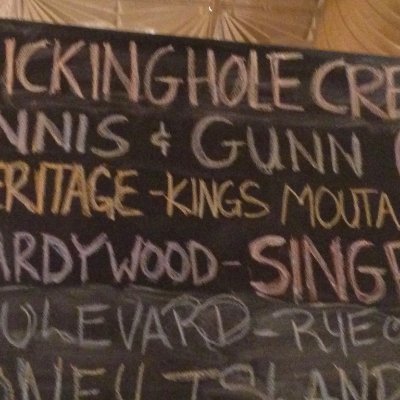 ICKINGHOLE CRE
NNIS & GUNN
ERITAGE - KINGS MOUTA
ARDYWOOD - SING
OULEVARD - RYE
ONEY ISLAND